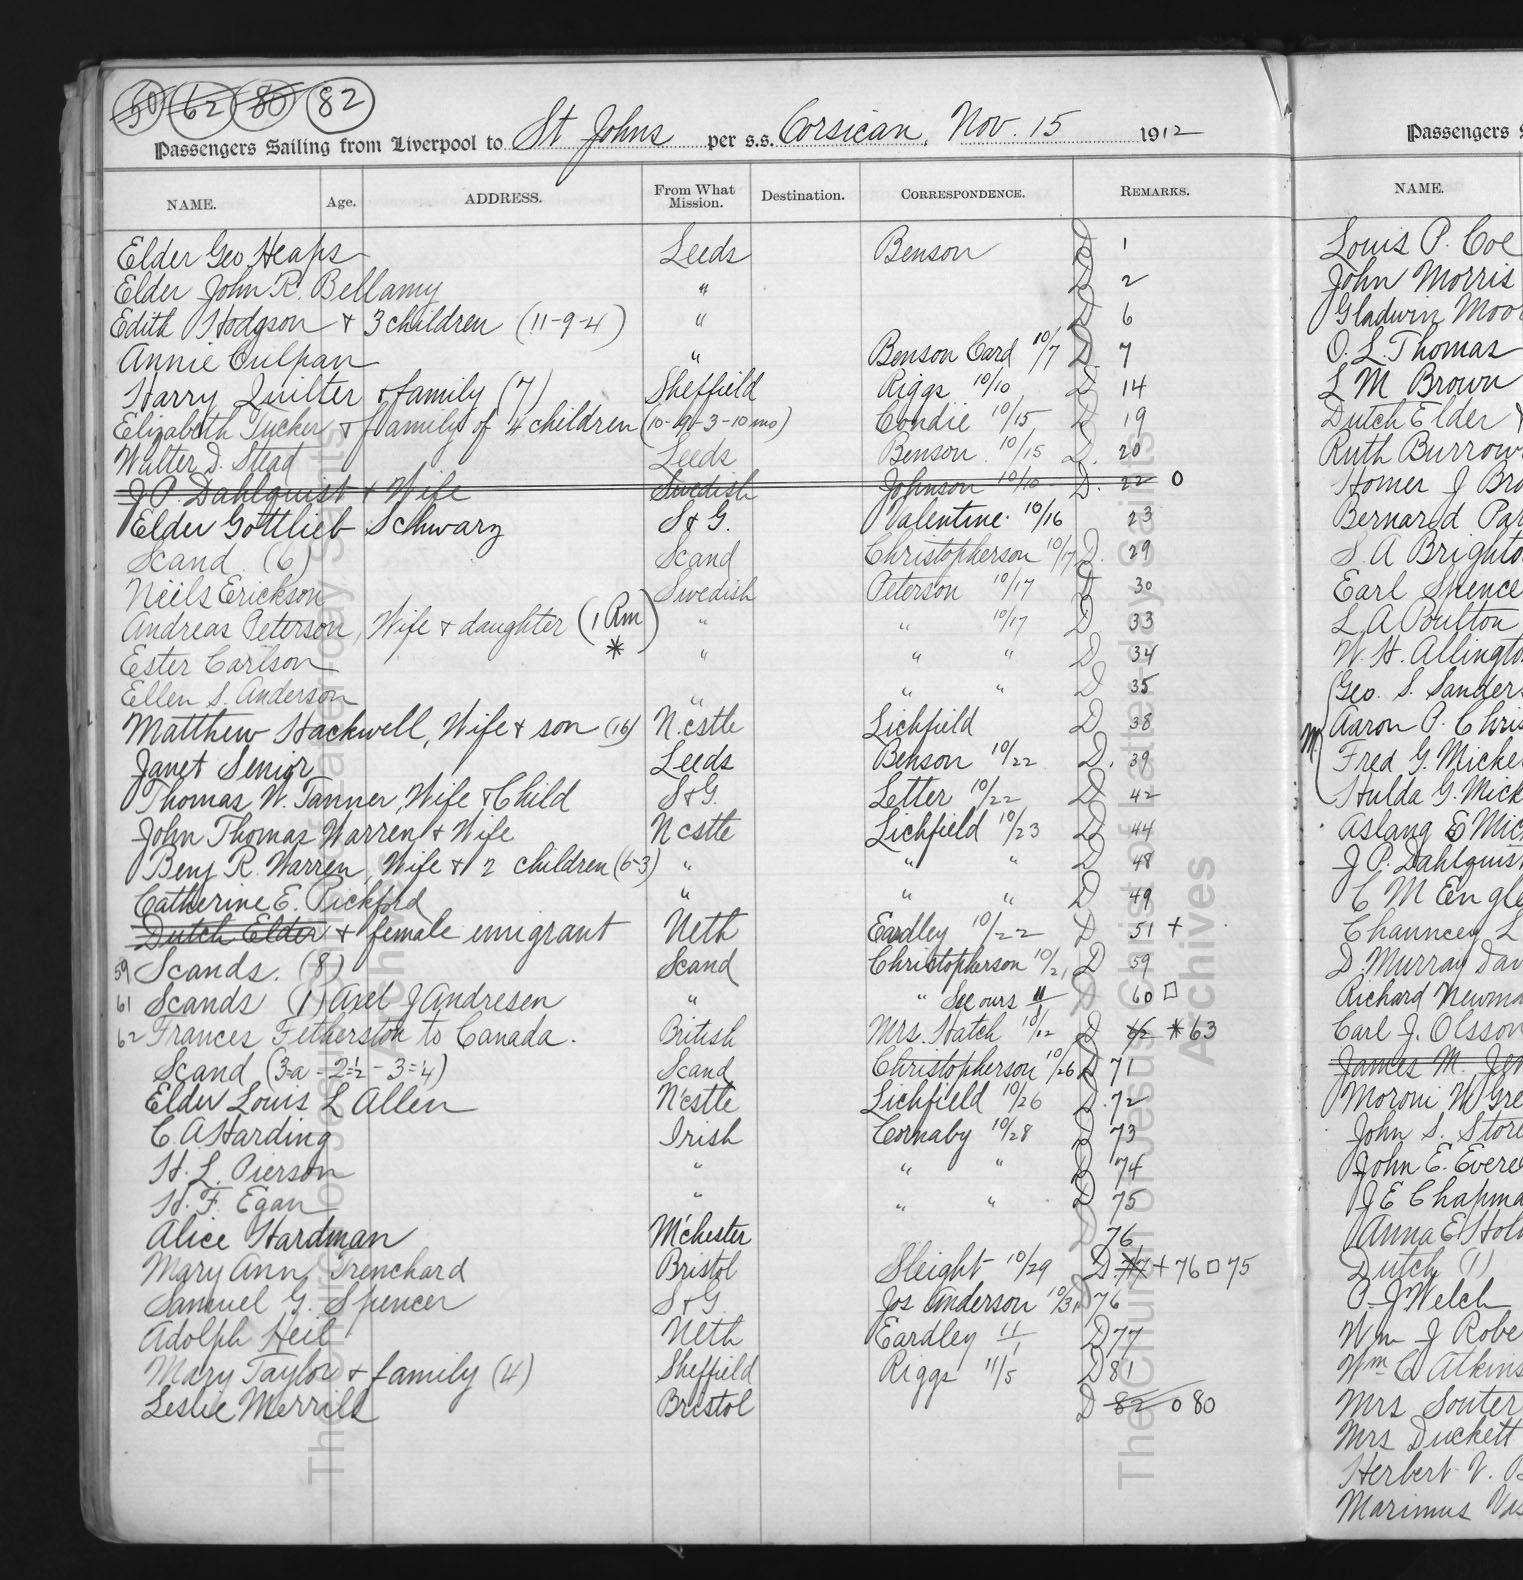 50 62 80 82
Passengers Sailing from Liverpool to St Johns per s.s. Corsican, Nov. 15 1912
NAME. Age. ADDRESS. From What Mission. Destination. CORRESPONDENCE. REMARKS.
Elder Geo. Heaps Leeds Benson D 1
Elder John R. Bellamy " D 2
Edith Hodgson + 3 children (11-9-4) " D 6
Annie Culpan " Benson Card 10/7 D. 7
Harry Quilter + family (7) Sheffield Riggs 10/10 D. 14
Elizabeth Tucker + family of 4 children (10-9-3-10 mo) Condie 10/15 D 19
Walter D. Stead Leeds Benson 10/15 D. 20
J. P. Dahlquist + Wife Swedish Johnson 10/10 D. 22 O
Elder Gottlieb Schwarz S & G. Valentine 10/16 23
Scand. (6) Scand Christopherson 10/17 D. 29
Neils Erickson Swedish Peterson 10/17 D 30
Andreas Peterson, Wife + daughter (1 Rm) " " 10/17 D 33
*
Ester Carlson " " " D 34
Ellen S. Anderson " " " D 35
Matthew Hackwell, Wife + son (16) N'cstle Lichfield D. 38
Janet Senior Leeds Benson 10/22 D. 39
Thomas W. Tanner, Wife + Child S & G. Letter 10/22 D 42
John Thomas Warren + Wife Ncstle Lichfield 10/23 D 44
Benj R. Warren, Wife + 2 children (6-3) " " " D 48
Catherine E. Pickford " " " D 49
Dutch Elder + female emigrant Neth Eardley 10/22 D 51 +
59 Scands. (8) Scand Christopherson 10/21 D 59
61 Scands (1) Axel J Andresen " " See ours 11 D 60 □
62 Frances Fetherston to Canada. British Mrs. Hatch 10/12 D 62 * 63
Scand (3-a - 2=½ - 3=¼) Scand Christopherson 10/26 D 71
Elder Louis L Allen N'cstle Lichfield 10/26 D. 72
C. A Harding Irish Cornaby 10/28 D 73
H. L. Pierson " " " D 74
H. F. Egan " " " D 75
Alice Hardman M'chester 76
Mary Ann Trenchard Bristol Sleight 10/29 D 77 + 76 □ 75
Samuel G. Spencer S & G Jos Anderson 10/31 76
Adolph Heil Neth Eardley 11/1 D 77
Mary Taylor + family (4) Sheffield Riggs 11/5 D 81
Leslie Merrill Bristol D 82 o 80
Passengers
NAME.
Louis P. Coe
John Morris
Gladwin Moor
O. L. Thomas
L M Brown
Dutch Elder +
Ruth Burrow
Homer J Bro
Bernard Par
S. A Brighto
Earl Spence
L A Poulton
W. H. Allingto
Geo. S. Sanders
Aaron P. Chris
M Fred G. Micke
Hulda G. Mick
Aslang E Mic
J P. Dahlquist
C M Engle
Chauncey L
D. Murray Dav
Richard Newma
Carl J. Olsson
James M. Jen
Moroni W Gre
John S. Store
John E. Evere
J E Chapma
Anna E. Hol
Dutch (1)
P. J Welch
Wm J Robe
Wm C Atkins
Mrs Souter
Mrs Duckett
Herbert V. B
Marinus Vas
The Church of Jesus Christ of Latter-day Saints Archives
The Church of Jesus Christ of Latter-day Saints Archives